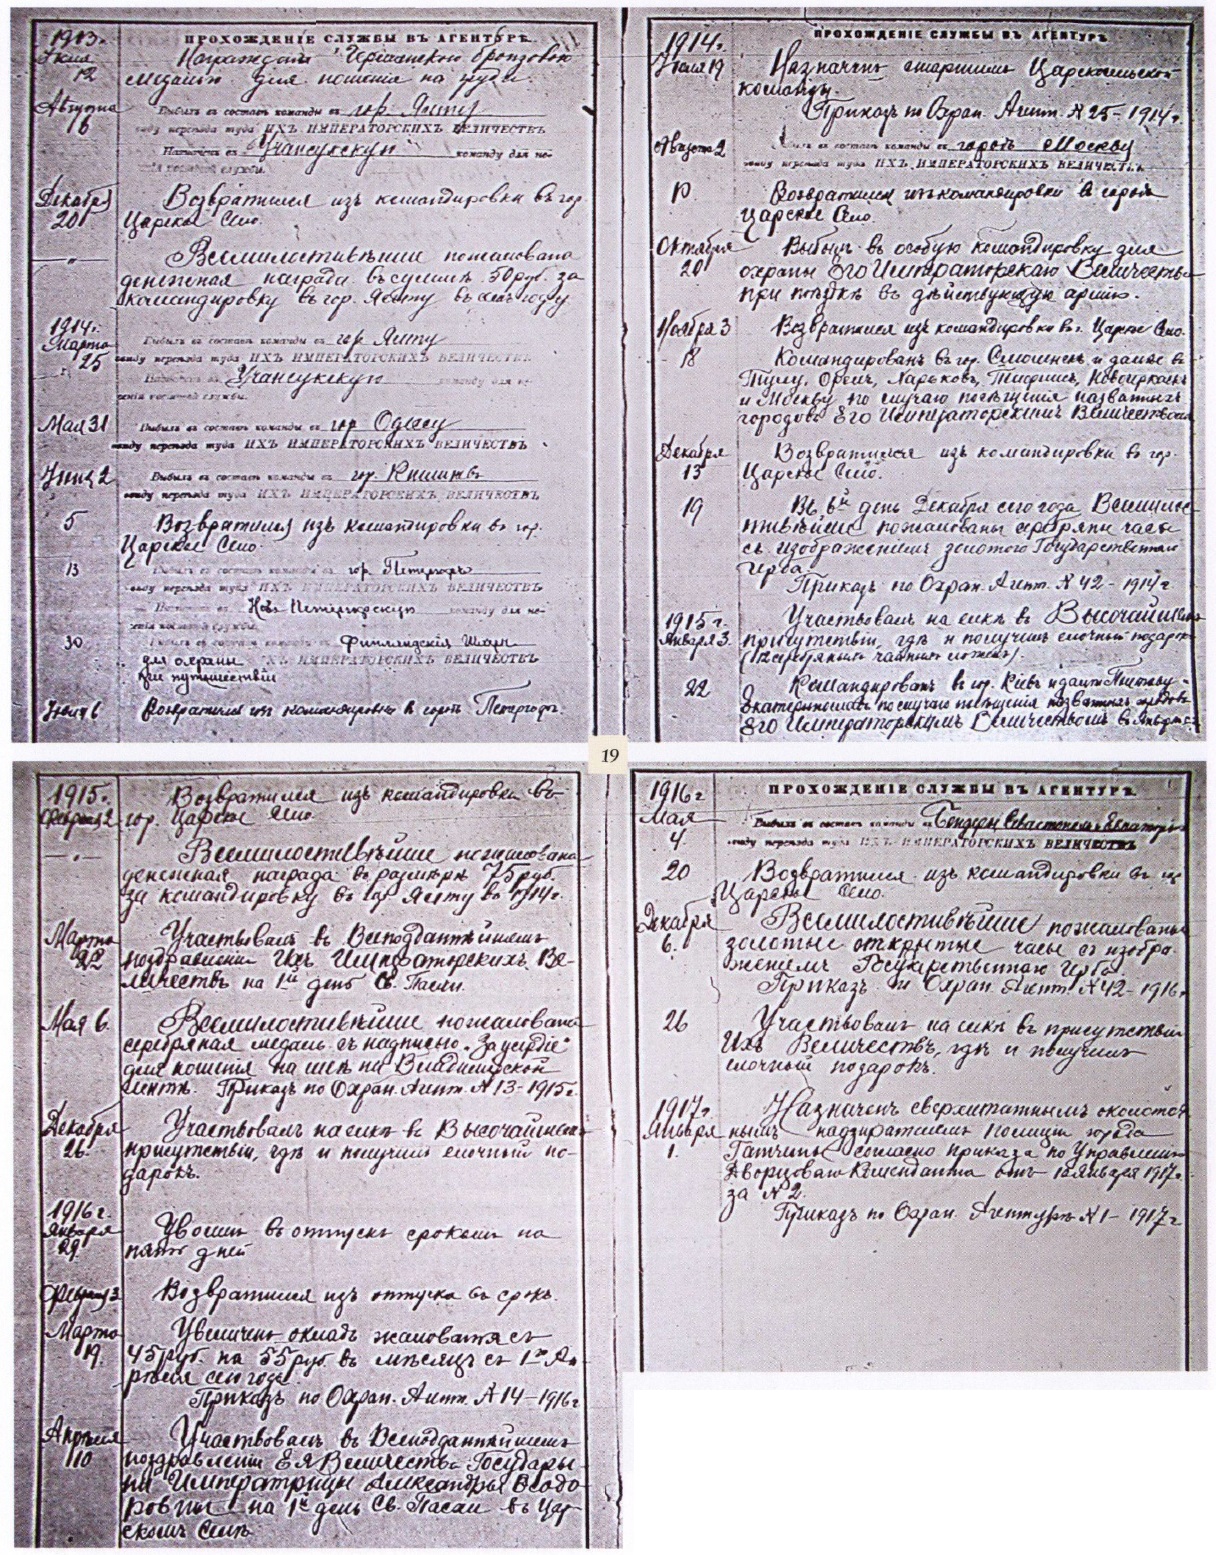 ПРОХОЖДЕНІЕ СЛУЖБЫ ВЪ АГЕНТУРѢ.
1913 г.
12
Награжденъ бронзовою
медалью для ношенія на груди.
Августа
16
Выбылъ въ составъ команды въ гор. Ялту
ввиду переѣзда туда ИХЪ ИМПЕРАТОРСКИХЪ ВЕЛИЧЕСТВЪ
Назначенъ въ Учансукскую команду для не-
сенія
службы.
Декабря
20
Возвратился изъ командировки въ гор.
Царское Село.
— „ —
Всемилостивѣйше пожалована
денежная награда въ суммѣ 50 руб. за
командировку въ гор. Ялту въ семъ году
1914 г.
Марта
25
Выбылъ въ составъ команды въ гор. Ялту
ввиду переѣзда туда ИХЪ ИМПЕРАТОРСКИХЪ ВЕЛИЧЕСТВЪ
Назначенъ въ Учансукскую команду для не-
сенія службы.
Мая 31
Выбылъ въ составъ команды въ гор. Одессу
ввиду переѣзда туда ИХЪ ИМПЕРАТОРСКИХЪ ВЕЛИЧЕСТВЪ
Іюня 2
Выбылъ въ составъ команды въ гор. Кишинев
ввиду переѣзда туда ИХЪ ИМПЕРАТОРСКИХЪ ВЕЛИЧЕСТВЪ
5
Возвратился изъ командировки въ гор.
Царское Село.
13
Выбылъ въ составъ команды въ гор. Петергофъ
ввиду переѣзда туда ИХЪ ИМПЕРАТОРСКИХЪ ВЕЛИЧЕСТВЪ
Назначенъ въ Ново Петергофскую команду для не-
сенія службы.
30
Выбылъ въ составъ команды въ Финляндскія Шхеры
для охраны ИХЪ ИМПЕРАТОРСКИХЪ ВЕЛИЧЕСТВЪ
при путешествіи
6
Возвратился изъ командировки въ городъ Петергофъ.
ПРОХОЖДЕНІЕ СЛУЖБЫ ВЪ АГЕНТУРѢ
1914 г.
Іюля 19
Назначенъ старшимъ Царскосельской
команды.
Приказъ по Охран. Агент. № 25 – 1914 г.
Августа 2
Выбылъ въ составъ команды въ городъ Москву
ввиду переѣзда туда ИХЪ ИМПЕРАТОРСКИХЪ ВЕЛИЧЕСТВЪ
Возвратился изъ командировки въ городъ
Царское Село.
Октября
20
Выбылъ въ особую командировку для
охраны Его Императорскаго Величества
при поѣздкѣ въ дѣйствующую армію.
Ноября 3
Возвратился изъ командировки въ г. Царское Село.
18
Командированъ въ гор. Смоленскъ и далѣе въ
Тулу, Орелъ, Харьковъ, Тифлисъ, Новочеркаскъ
и Москву по случаю посѣщенія названныхъ
городовъ Его Императорскимъ Величествомъ
Декабря
13
Возвратился изъ командировки въ гор.
Царское Село.
19
Въ 6й день Декабря сего года Всемилос-
тивѣйше пожалованы серебряные часы
съ изображеніемъ золотого Государственнаго
Герба.
Приказъ по Охран. Агент. № 42 – 1914 г.
1915 г.
Января 3.
Участвовалъ на елкѣ въ Высочайшемъ
присутствіи, гдѣ и получилъ елочный подарокъ
22
Командированъ въ гор. Кіевъ и далѣе Полтаву
Екатеринославъ по случаю посѣщенія названныхъ городовъ
Его Императорскимъ Величествомъ въ Январѣ
19
1915 г.
Февраля 2
Возвратился изъ командировки въ
гор. Царское Село.
— „ —
Всемилостивѣйше пожалована
денежная награда въ размѣрѣ 75 руб.
за командировку въ гор. Ялту въ 1914 г.
Марта
22
Участвовалъ въ Всеподданнѣйшемъ
поздравленіи Ихъ Императорскихъ Ве-
личествъ на 1й день Св. Пасхи.
Мая 6.
Всемилостивѣйше пожалована
серебряная медаль съ надписью „За усердіе"
для ношенія на шеѣ на Владимірской
лентѣ. Приказъ по Охран. Агент. № 13 – 1915 г.
Декабря
26.
Участвовалъ на елкѣ въ Высочайшемъ
присутствіи, гдѣ и получилъ елочный по-
дарокъ.
1916 г.
Января
29.
Уволенъ въ отпускъ срокомъ на
пять дней
Февраля 3
Возвратился изъ отпуска въ срокъ.
Марта
19.
Увеличенъ окладъ жалованья съ
45 руб. на 55 руб. въ мѣсяцъ съ 1го Ап-
рѣля сего года.
Приказъ по Охран. Агент. № 14 – 1916 г
Апрѣля
10
Участвовалъ въ Всеподданнѣйшемъ
поздравленіи Ея Величества Государы-
ни Императрицы Александры Ѳеодо-
ровны на 1й день Св. Пасхи въ Цар-
скомъ Селѣ
ПРОХОЖДЕНІЕ СЛУЖБЫ ВЪ АГЕНТУРѢ.
1916 г
Мая
4
Выбылъ въ составъ команды въ Бендеры Севастополь Евпаторію
ввиду переѣзда туда ИХЪ ИМПЕРАТОРСКИХЪ ВЕЛИЧЕСТВЪ
20
Возвратился изъ командировки въ гор.
Царское Село.
Декабря
6.
Всемилостивѣйше пожалованы
золотые открытые часы съ изобра-
женіемъ Государственнаго Герба.
Приказъ по Охран. Агент. № 42 – 1916 г.
26
Участвовалъ на елкѣ въ присутствіи
Ихъ Величествъ, гдѣ и получилъ
елочный подарокъ.
1917 г.
Января
1.
Назначенъ сверхштатнымъ околоточ-
нымъ надзирателемъ Полиціи города
Гатчины согласно приказа по Управленію
Дворцоваго Коменданта отъ Января 1917 г.
за № 2.
Приказъ по Охран. Агентурѣ № 1 – 1917 г